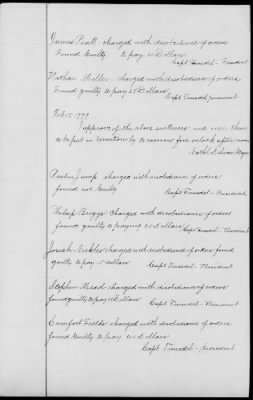 James Pratt charged with disobedience of orders
Found Guilty to pay 10 Dollars
Capt Trusdel - President
Nathan Miller - charged with disobedience of orders
Found guilty to pay 21 Dollars
Capt Trusdel, president
Feb 15 1779
I approve of the above sentences and order them
to be put in execution by tomorrow
Reuben charged with disobedience of orders
found not Guilty
Capt Trusdel - President
Philip Briggs charged with disobedience of orders
found guilty to paying 20 Dollars Capt Trusdel - President
Josiah charged with disobedience of orders found
guilty to pay 15 dollars Capt Trusdel - President
Stephen Mead charged with disobedience of orders
found guilty to pay Dollars
Capt Trusdel - President
Comfort Fields charged with disobedience of orders
found Guilty to pay Dollars
Capt Trusdel - President